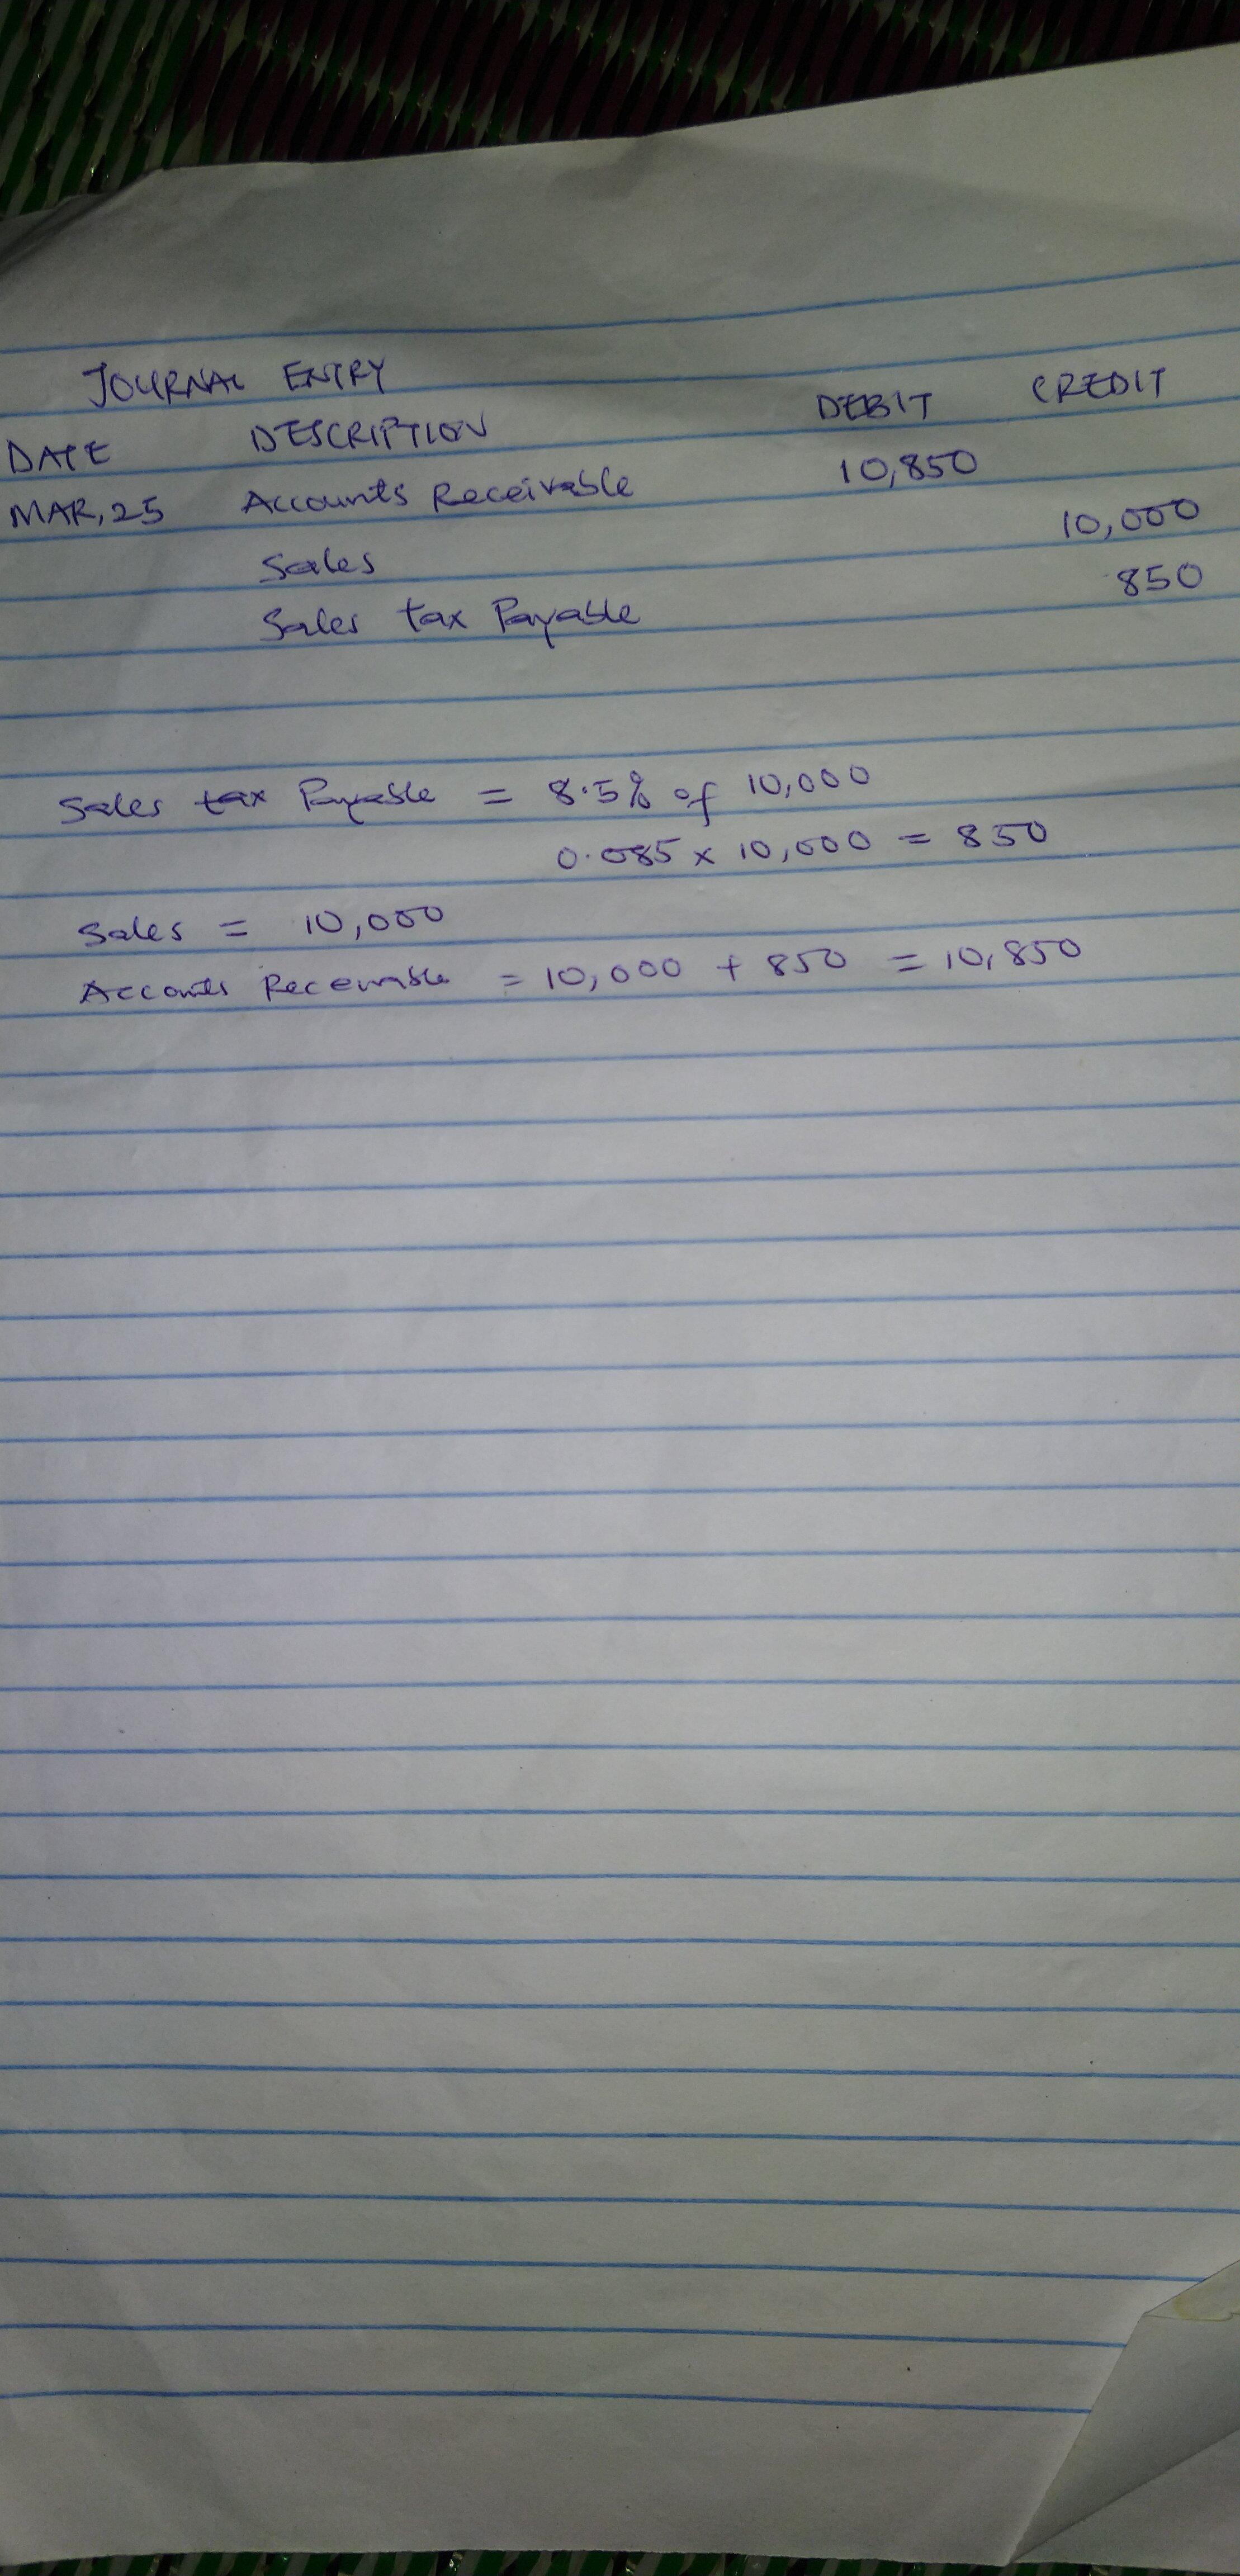 JOURNAL ENTRY
DATE DESCRIPTION DEBIT CREDIT
MAR, 25 Accounts Receivable 10,850
Sales 10,000
Sales tax Payable 850
Sales tax Payable = 8.5% of 10,000
0.085 x 10,000 = 850
Sales = 10,000
Accounts Receivable = 10,000 + 850 = 10,850